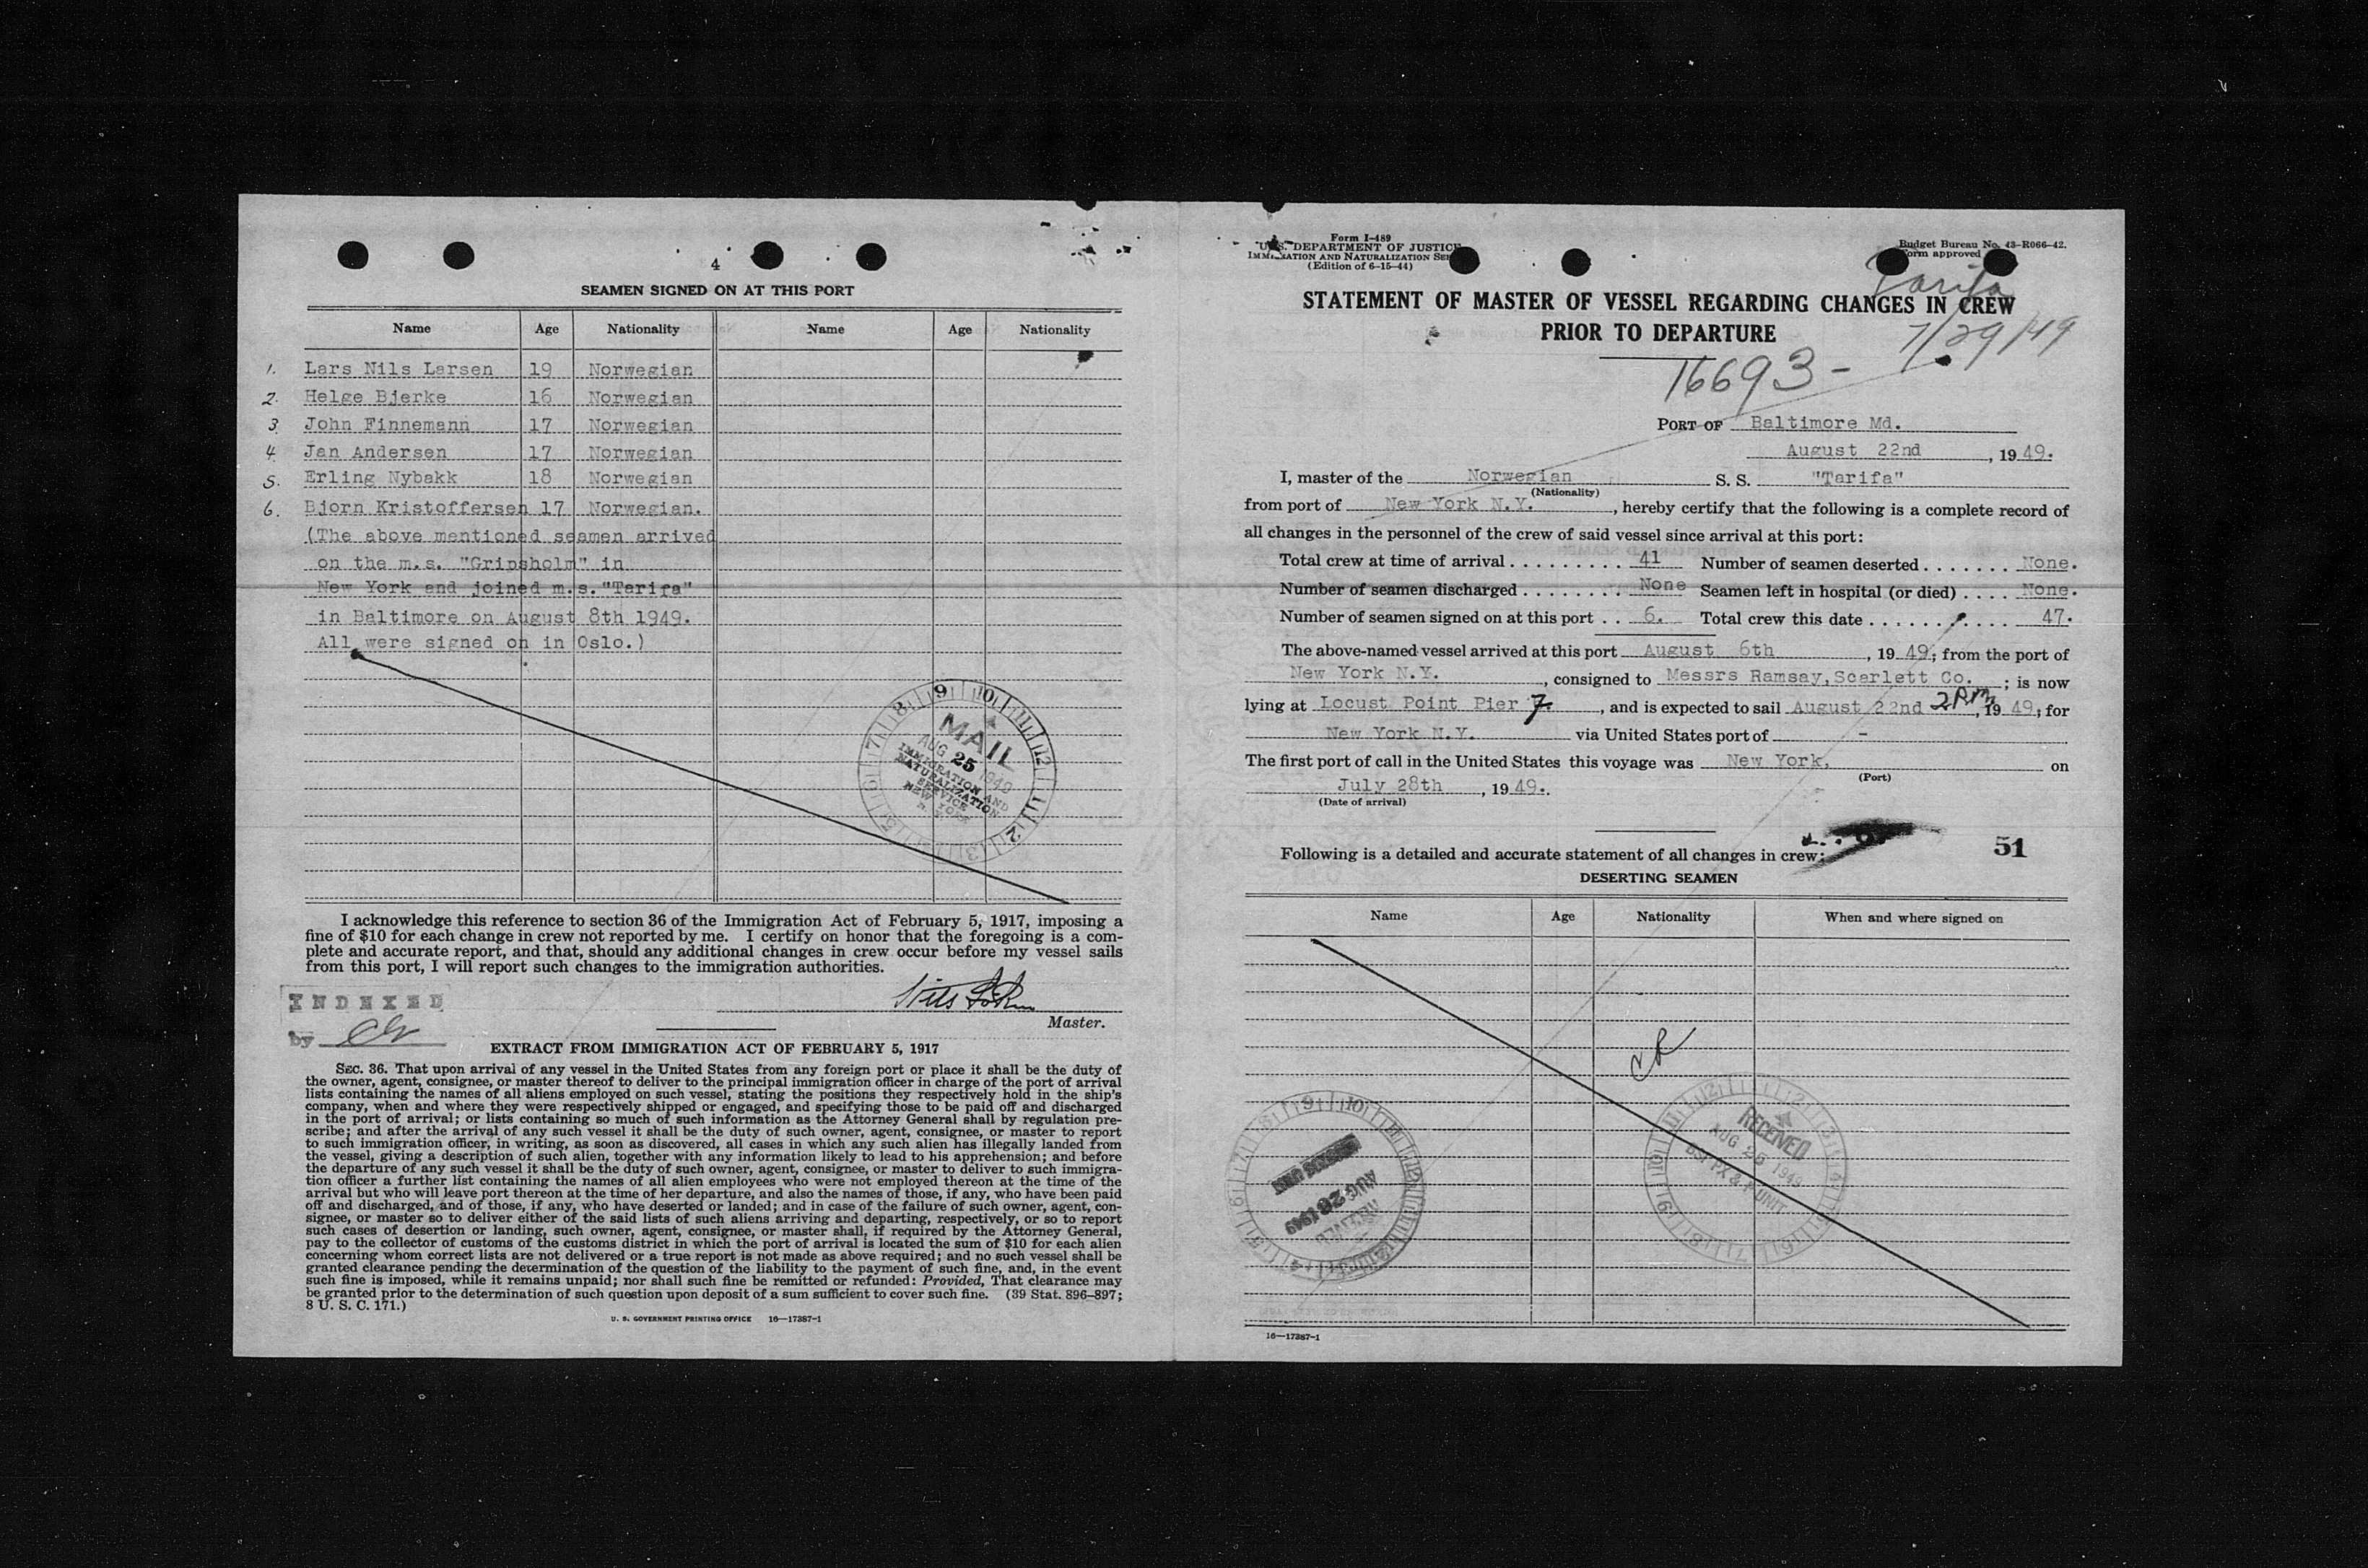 4
SEAMEN SIGNED ON AT THIS PORT
Name Age Nationality Name Age Nationality
1. Lars Nils Larsen 19 Norwegian
2. Helge Bjerke 16 Norwegian
3. John Finnemann 17 Norwegian
4. Jan Andersen 17 Norwegian
5. Erling Nybakk 18 Norwegian
6. Bjorn Kristoffersen 17 Norwegian.
(The above mentioned seamen arrived
on the m.s. "Gripsholm" in
New York and joined m.s."Tarifa"
in Baltimore on August 8th 1949.
All were signed on in Oslo.)
MAIL
AUG 25 1949
IMMIGRATION AND
NATURALIZATION
SERVICE
NEW YORK
I acknowledge this reference to section 36 of the Immigration Act of February 5, 1917, imposing a
fine of $10 for each change in crew not reported by me. I certify on honor that the foregoing is a com-
plete and accurate report, and that, should any additional changes in crew occur before my vessel sails
from this port, I will report such changes to the immigration authorities.
INDEXED
by
Master.
EXTRACT FROM IMMIGRATION ACT OF FEBRUARY 5, 1917
SEC. 36. That upon arrival of any vessel in the United States from any foreign port or place it shall be the duty of
the owner, agent, consignee, or master thereof to deliver to the principal immigration officer in charge of the port of arrival
lists containing the names of all aliens employed on such vessel, stating the positions they respectively hold in the ship's
company, when and where they were respectively shipped or engaged, and specifying those to be paid off and discharged
in the port of arrival; or lists containing so much of such information as the Attorney General shall by regulation pre-
scribe; and after the arrival of any such vessel it shall be the duty of such owner, agent, consignee, or master to report
to such immigration officer, in writing, as soon as discovered, all cases in which any such alien has illegally landed from
the vessel, giving a description of such alien, together with any information likely to lead to his apprehension; and before
the departure of any such vessel it shall be the duty of such owner, agent, consignee, or master to deliver to such immigra-
tion officer a further list containing the names of all alien employees who were not employed thereon at the time of the
arrival but who will leave port thereon at the time of her departure, and also the names of those, if any, who have been paid
off and discharged, and of those, if any, who have deserted or landed; and in case of the failure of such owner, agent, con-
signee, or master so to deliver either of the said lists of such aliens arriving and departing, respectively, or so to report
such cases of desertion or landing, such owner, agent, consignee, or master shall, if required by the Attorney General,
pay to the collector of customs of the customs district in which the port of arrival is located the sum of $10 for each alien
concerning whom correct lists are not delivered or a true report is not made as above required; and no such vessel shall be
granted clearance pending the determination of the question of the liability to the payment of such fine, and, in the event
such fine is imposed, while it remains unpaid; nor shall such fine be remitted or refunded: Provided, That clearance may
be granted prior to the determination of such question upon deposit of a sum sufficient to cover such fine. (39 Stat. 896–897;
8 U. S. C. 171.)
U. S. GOVERNMENT PRINTING OFFICE 16—17387-1
Form I-489
U.S. DEPARTMENT OF JUSTICE
IMMIGRATION AND NATURALIZATION SER
(Edition of 6-15-44)
Budget Bureau No. 43-R066-42.
Form approved
Tarifa
STATEMENT OF MASTER OF VESSEL REGARDING CHANGES IN CREW
PRIOR TO DEPARTURE
7/29/49
16693-
PORT OF Baltimore Md.
August 22nd, 1949.
I, master of the Norwegian S. S. "Tarifa"
(Nationality)
from port of New York N.Y., hereby certify that the following is a complete record of
all changes in the personnel of the crew of said vessel since arrival at this port:
Total crew at time of arrival . . . . . . . . . 41 Number of seamen deserted . . . . . . . None.
Number of seamen discharged . . . . . . . . None Seamen left in hospital (or died) . . . . None.
Number of seamen signed on at this port . . 6. Total crew this date . . . . . . . . . . . 47.
The above-named vessel arrived at this port August 6th, 1949; from the port of
New York N.Y., consigned to Messrs Ramsay,Scarlett Co.; is now
lying at Locust Point Pier 7, and is expected to sail August 22nd 2PM, 1949; for
New York N.Y. via United States port of -
The first port of call in the United States this voyage was New York. on
(Port)
July 28th, 1949.
(Date of arrival)
51
Following is a detailed and accurate statement of all changes in crew:
DESERTING SEAMEN
Name Age Nationality When and where signed on
CR
RECEIVED
AUG 25 1949
AUG 26 1949
16—17387-1